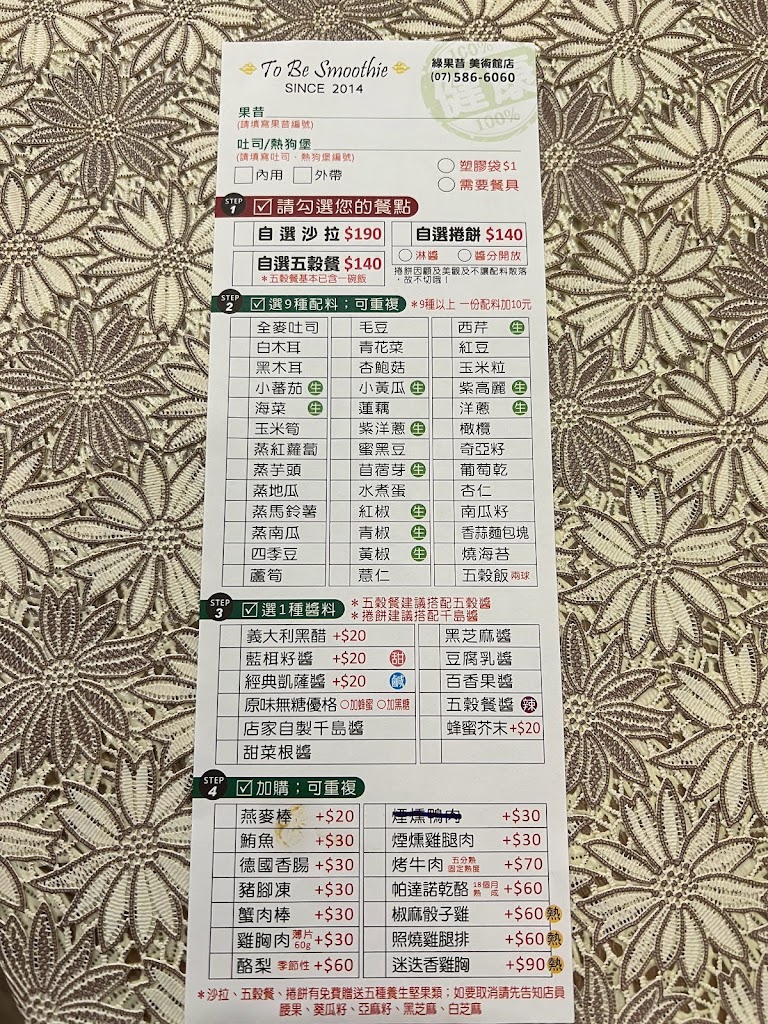 To Be Smoothie
SINCE 2014
綠果昔 美術館店
(07) 586-6060
100%
健康
100%
果昔
(請填寫果昔編號)
吐司/熱狗堡
(請填寫吐司、熱狗堡編號)
內用 外帶
塑膠袋$1
需要餐具
STEP 1 請勾選您的餐點
自選沙拉 $190
自選捲餅 $140
淋醬 醬分開放
自選五穀餐 $140
＊五穀餐基本已含一碗飯
捲餅因顧及美觀及不讓配料散落
，故不切哦！
STEP 2 選9種配料；可重複 ＊9種以上 一份配料加10元
全麥吐司 毛豆 西芹 生
白木耳 青花菜 紅豆
黑木耳 杏鮑菇 玉米粒
小蕃茄 生 小黃瓜 生 紫高麗 生
海菜 生 蓮藕 洋蔥 生
玉米筍 紫洋蔥 生 橄欖
蒸紅蘿蔔 蜜黑豆 奇亞籽
蒸芋頭 苜蓿芽 生 葡萄乾
蒸地瓜 水煮蛋 杏仁
蒸馬鈴薯 紅椒 生 南瓜籽
蒸南瓜 青椒 生 香蒜麵包塊
四季豆 黃椒 生 燒海苔
蘆筍 薏仁 五穀飯 兩球
STEP 3 選1種醬料
＊五穀餐建議搭配五穀醬
＊捲餅建議搭配千島醬
義大利黑醋 +$20 黑芝麻醬
藍柑籽醬 +$20 甜 豆腐乳醬
經典凱薩醬 +$20 鹹 百香果醬
原味無糖優格 加蜂蜜 加黑糖 五穀餐醬 辣
店家自製千島醬 蜂蜜芥末+$20
甜菜根醬
STEP 4 加購；可重複
燕麥棒 +$20 煙燻鴨肉 +$30
鮪魚 +$30 煙燻雞腿肉 +$30
德國香腸 +$30 烤牛肉 五分熟 固定熟度 +$70
豬腳凍 +$30 帕達諾乾酪 18個月 熟成 +$60
蟹肉棒 +$30 椒麻骰子雞 +$60 熱
雞胸肉 薄片 60g +$30 照燒雞腿排 +$60 熱
酪梨 季節性 +$60 迷迭香雞胸 +$90 熱
＊沙拉、五穀餐、捲餅有免費贈送五種養生堅果類；如要取消請先告知店員
腰果、葵瓜籽、亞麻籽、黑芝麻、白芝麻